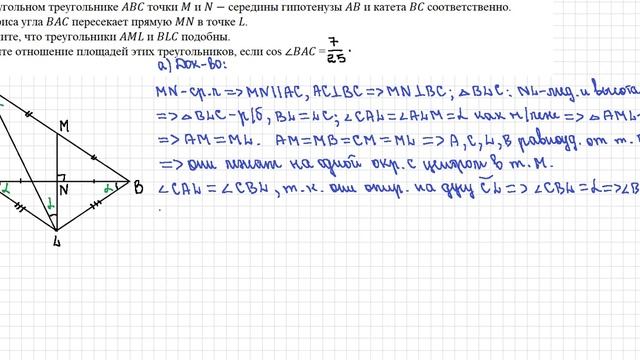 угольном треугольнике ABC точки M и N — середины гипотенузы AB и катета BC соответственно.
риса угла BAC пересекает прямую MN в точке L.
ите, что треугольники AML и BLC подобны.
ите отношение площадей этих треугольников, если cos ∠BAC = 7/25.
а) Док-во:
MN-ср.л => MN∥AC, AC⊥BC => MN⊥BC; △BLC: NL-мед. и высота
=> △BLC-р/б, BL=LC; ∠CAL=∠ALM=α как н/леж => △AML-
=> AM=ML. AM=MB=CM=ML => A, C, L, B равноуд. от т.
=> они лежат на одной окр. с центром в т. M.
∠CAL=∠CBL, т.к. они опир. на дугу CL => ∠CBL=α => ∠B
M
α N α B
α
L